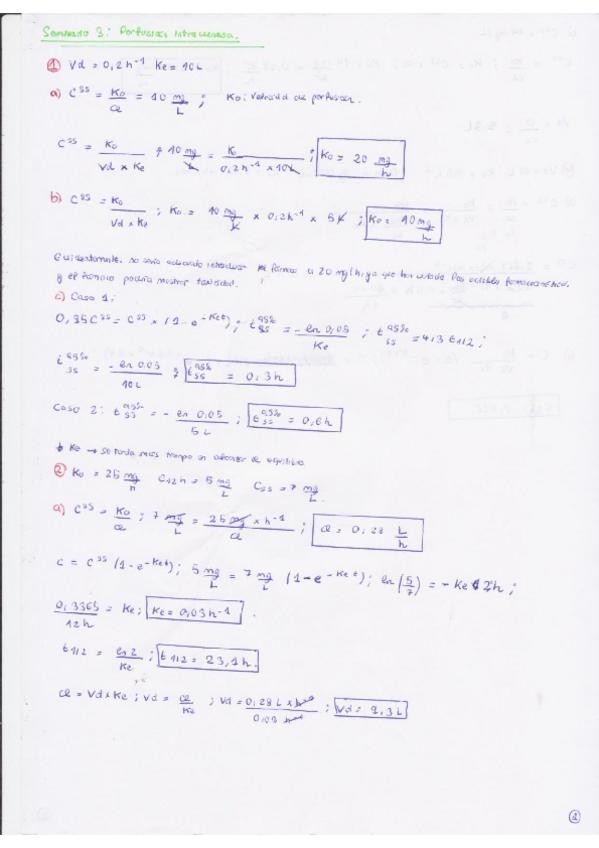 Seminario 3: Perfusión intravenosa.
① Vd = 0,2 h⁻¹ Ke = 10L
a) Cˢˢ = Ko/Cl = 10 mg/L ; Ko: Velocidad de perfusión.
Cˢˢ = Ko/(Vd x Ke) ; 10 mg/L = Ko/(0,2h⁻¹ x 10L) ; Ko = 20 mg/h
b) Cˢˢ = Ko/(Vd x Ke) ; Ko = 10 mg/L x 0,2h⁻¹ x 5L ; Ko = 10 mg/h
Evidentemente, no sería adecuado introducir fármaco a 20 mg/h, ya que han variado los
y el fármaco podría mostrar toxicidad.
c) Caso 1:
0,95Cˢˢ = Cˢˢ x (1 - e^-Ket) ; t ss 95% = - ln 0,05/Ke ; t ss 95% = 4,3 t1/2 ;
t ss 95% = - ln 0,05/10L ; t ss 95% = 0,3h.
Caso 2: t ss 95% = - ln 0,05/5L ; t ss 95% = 0,6h
↓ Ke → se tarda más tiempo en alcanzar el equilibrio
② Ko = 25 mg/h C12h = 5 mg/L Css = 7 mg/L
a) Cˢˢ = Ko/Cl ; 7 mg/L = 25 mg x h⁻¹/Cl ; Cl = 0,28 L/h
C = Cˢˢ (1 - e^-Ket) ; 5 mg/L = 7 mg/L (1 - e^-Ke t) ; ln(5/7) = - Ke 12h ;
0,3365/12h = Ke ; Ke = 0,03h⁻¹.
t 1/2 = ln 2/Ke ; t 1/2 = 23,1h.
Cl = Vd x Ke ; Vd = Cl/Ke ; Vd = 0,28 L x h⁻¹/0,03 h⁻¹ ; Vd = 9,3L
①